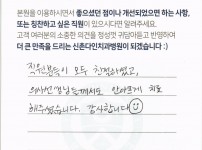 본원을 이용하시면서 좋으셨던 점이나 개선되었으면 하는 사항,
또는 칭찬하고 싶은 직원이 있으시다면 알려주세요.
고객 여러분의 소중한 의견을 정성껏 귀담아듣고 반영하여
더 큰 만족을 드리는 신촌다인치과병원이 되겠습니다 :)
직원분들이 모두 친절하셨고,
의사선생님들께서도 안아프게 치료
해주셨습니다. 감사합니다